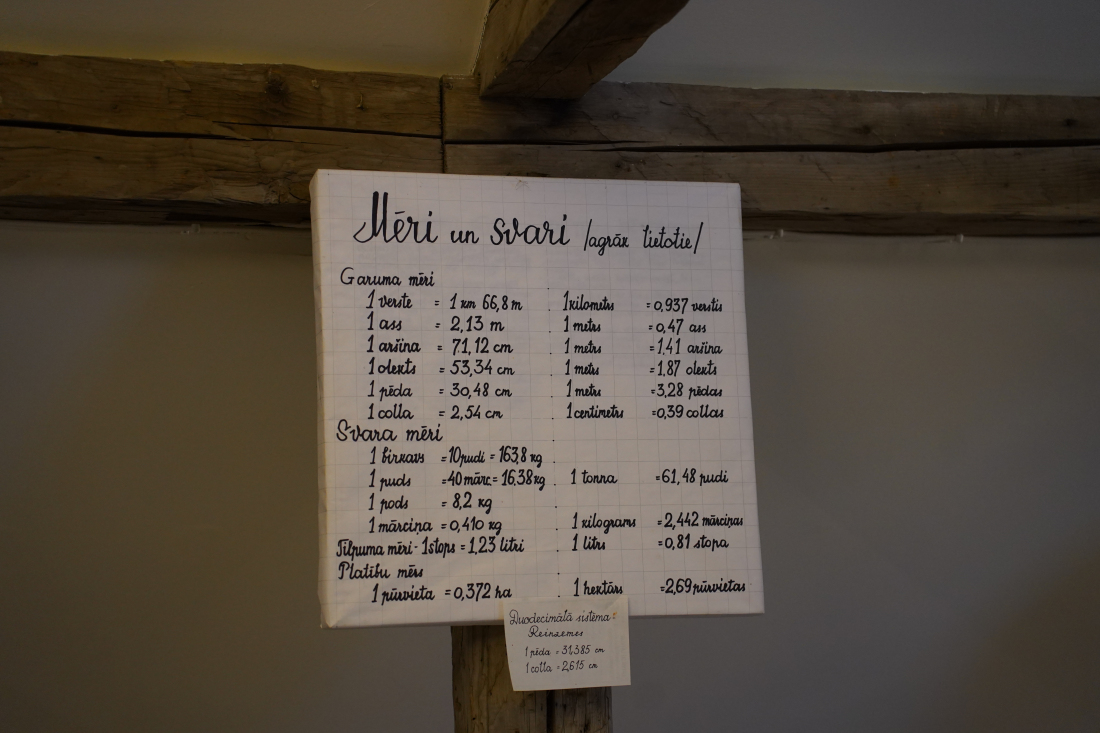 Mēri un svari /agrāk lietotie/
Garuma mēri
1 verste = 1 km 66,8 m 1 kilometrs = 0,937 verstis
1 ass = 2,13 m 1 metrs = 0,47 ass
1 aršina = 71,12 cm 1 metrs = 1,41 aršina
1 olekts = 53,34 cm 1 metrs = 1,87 olekts
1 pēda = 30,48 cm 1 metrs = 3,28 pēdas
1 colla = 2,54 cm 1 centimetrs = 0,39 collas
Svara mēri
1 birkavs = 10 pudi = 163,8 kg
1 puds = 40 mārc = 16,38 kg 1 tonna = 61,48 pudi
1 pods = 8,2 kg
1 mārciņa = 0,410 kg 1 kilograms = 2,442 mārciņas
Tilpuma mēri - 1 stops = 1,23 litri 1 litrs = 0,81 stopa
Platību mērs
1 pūrvieta = 0,372 ha 1 hektārs = 2,69 pūrvietas
Duodecimātā sistēma:
Reinzemes
1 pēda = 31,385 cm
1 colla = 2,615 cm